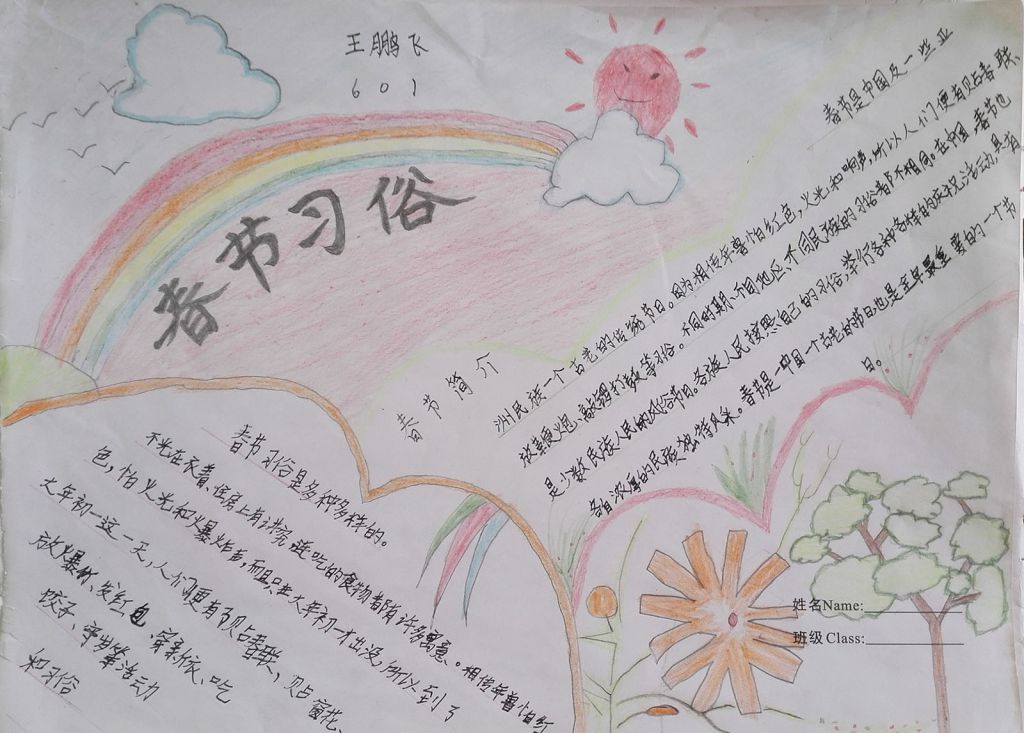 王鹏飞
601
春节习俗
春节简介
春节是中国及一些亚
洲民族一个古老的传统节日。因为相传年兽怕红色，火光，和响声，所以人们便有贴春联、
放鞭炮、敲锣打鼓等习俗。不同时期、不同地区、不同民族的习俗都不相同。在中国，春节也
是少数民族人民的风俗节日。各族人民按照自己的习俗，举行各种各样的庆祝活动，具有
各自浓厚的民族独特风采。春节是一中国一个古老的节日也是全年最重要的一个节
日。
春节习俗是多种多样的。
不光在衣着、住房上有讲究，连吃的食物都有许多寓意。相传年兽怕红
色，怕火光和爆炸声，而且只在大年初一才出没，所以到了
大年初一这一天，人们便有了贴春联，贴窗花、
放爆竹、发红包、穿新衣、吃
饺子、守岁等活动
和习俗
姓名Name:
班级Class: